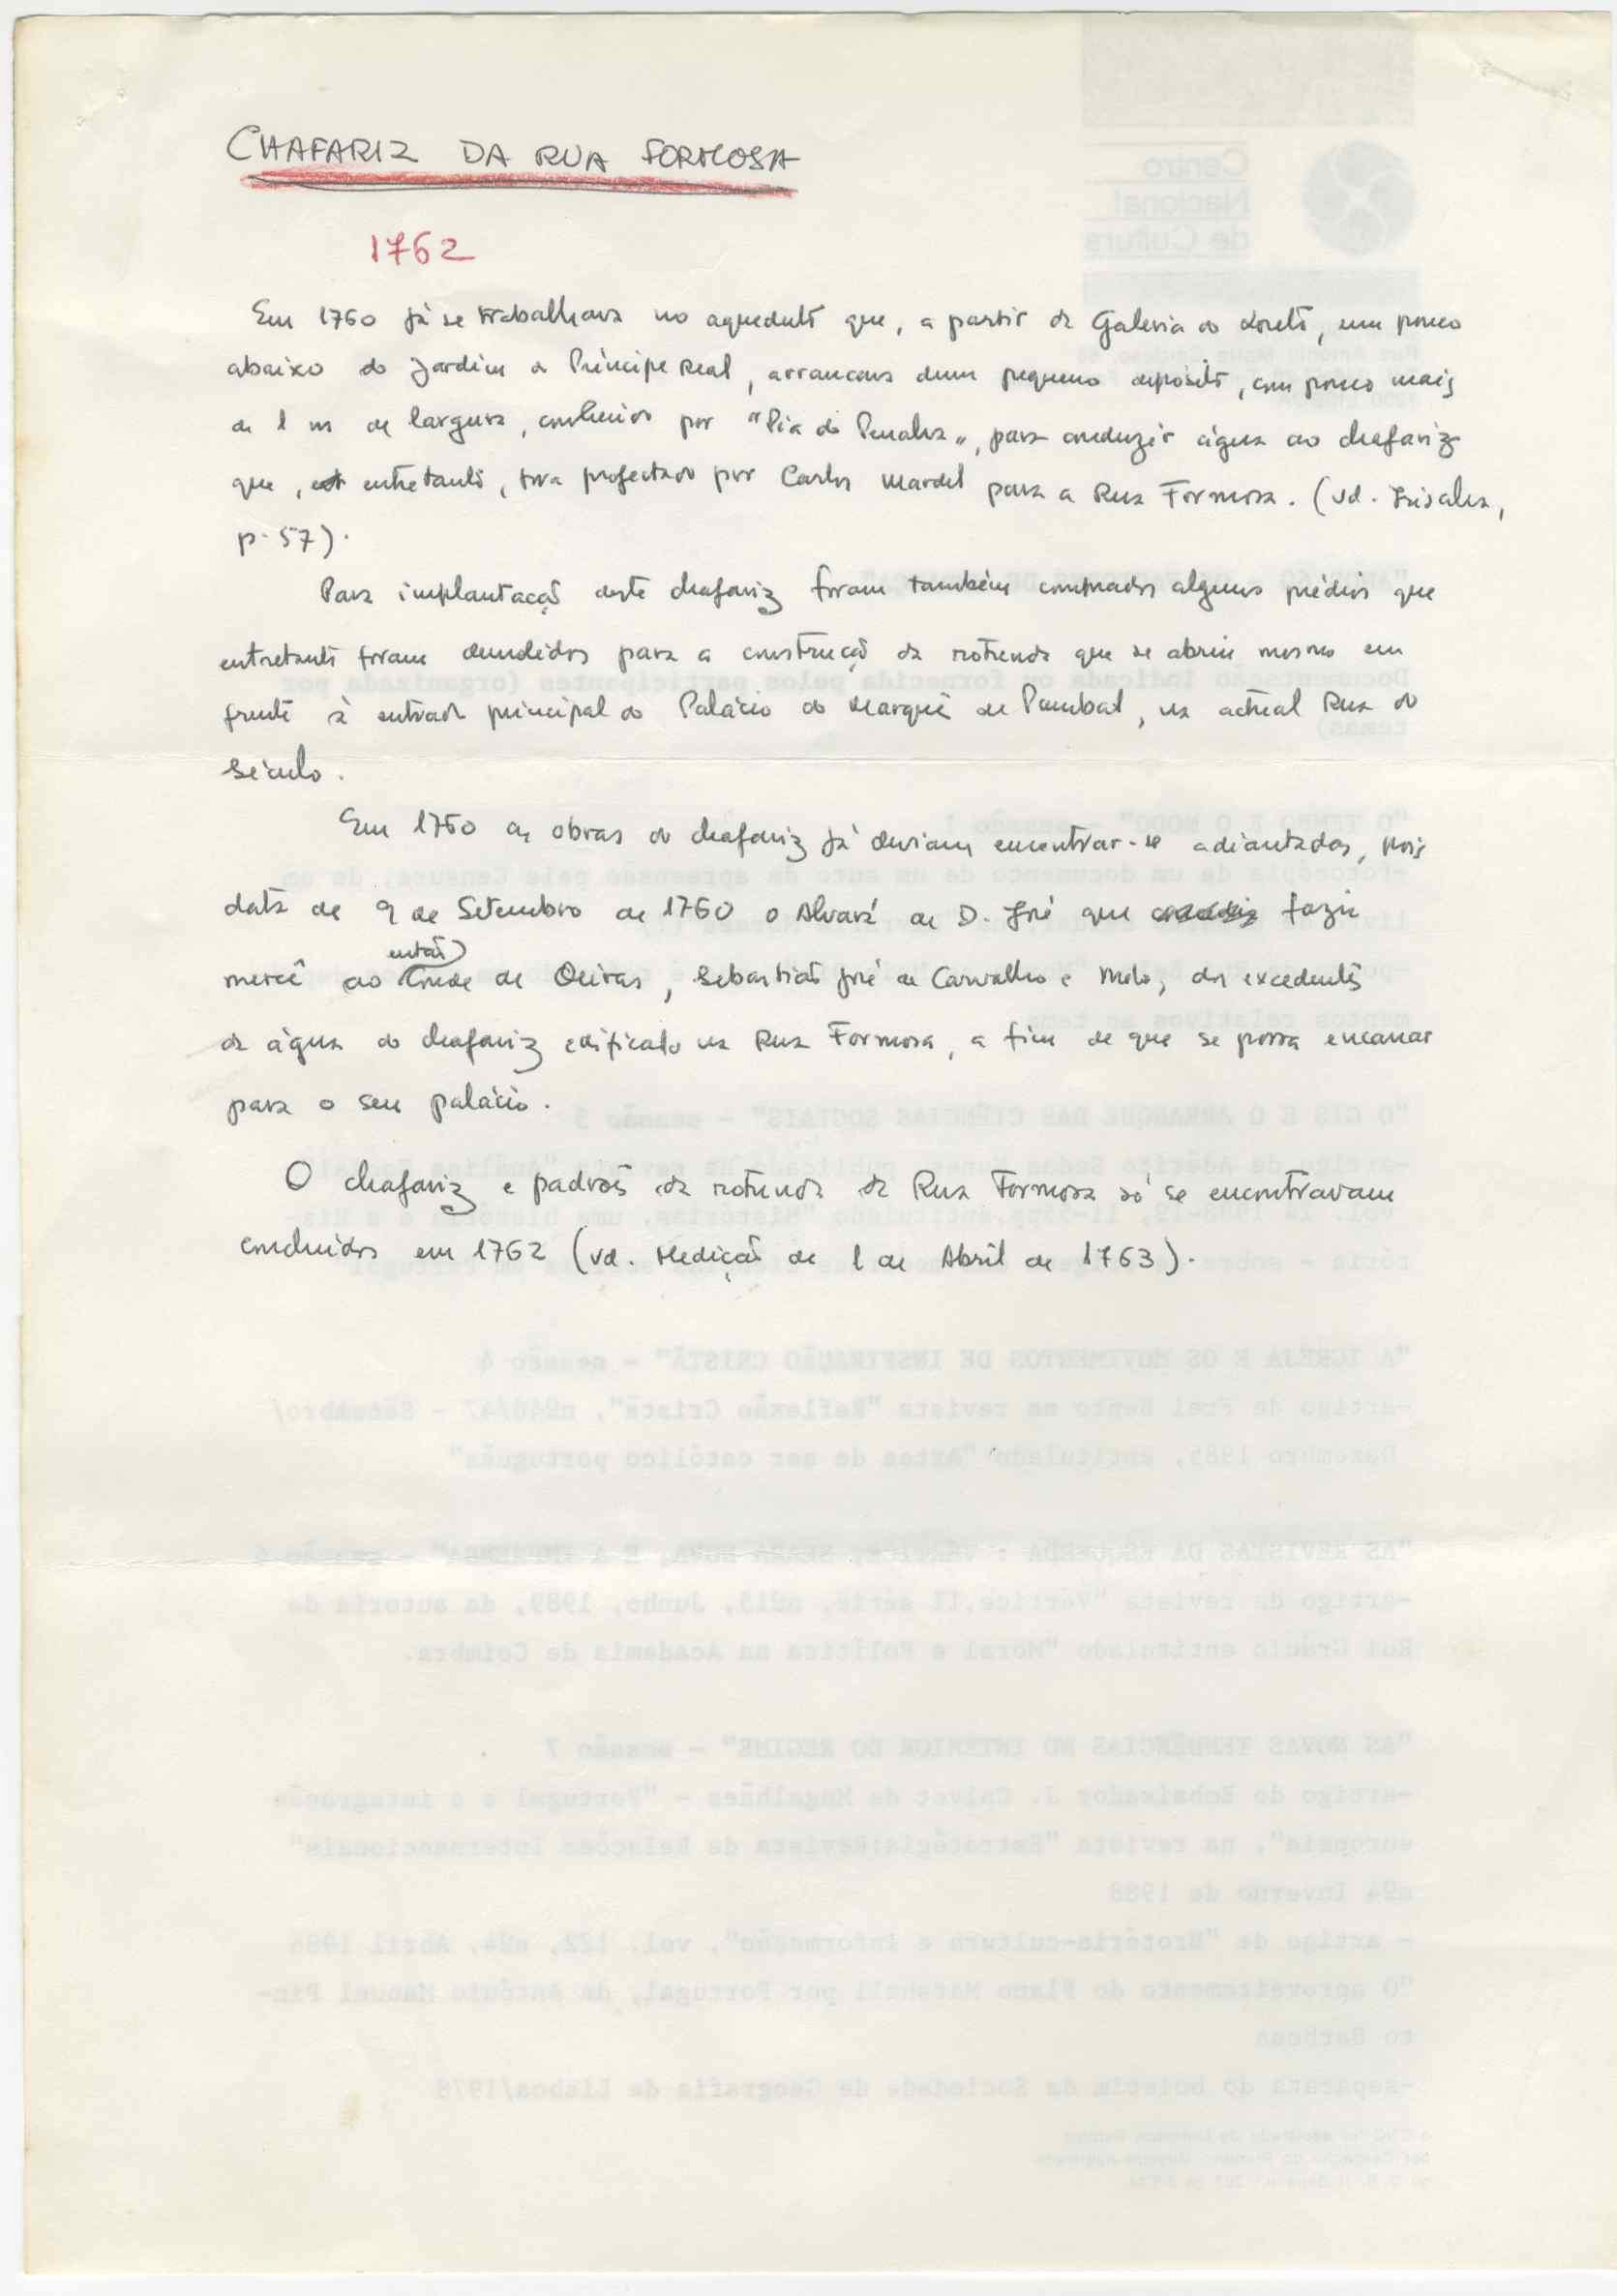 CHAFARIZ DA RUA FORMOSA
1762
Em 1760 já se trabalhava no aqueduto que, a partir da Galeria do Loreto, um pouco
abaixo do Jardim do Príncipe Real, arrancava dum pequeno depósito, com pouco mais
de 1 m de largura, conhecido por "Pia do Penalva", para conduzir água ao chafariz
que, entretanto, fora projectado por Carlos Mardel para a Rua Formosa. (vd.
p. 57).
Para implantação deste chafariz foram também comprados alguns prédios que
entretanto foram demolidos para a construção da rotunda que se abriu mesmo em
frente à entrada principal do Palácio do Marquês de Pombal, na actual Rua do
Século.
Em 1760 as obras do chafariz já deviam encontrar-se adiantadas, pois
data de 9 de Setembro de 1760 o Alvará de D. José que fazia
mercê ao então Conde de Oeiras, Sebastião José de Carvalho e Melo, dos excedentes
da água do chafariz edificado na Rua Formosa, a fim de que se possa encanar
para o seu palácio.
O chafariz e padrões da rotunda da Rua Formosa só se encontravam
concluídos em 1762 (vd. Medição de 1 de Abril de 1763).